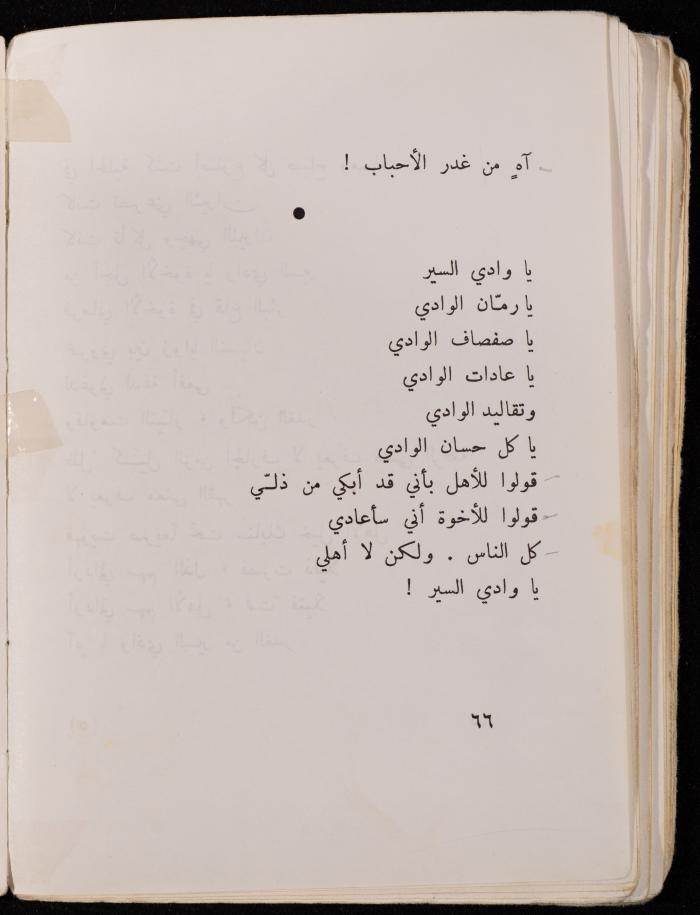 آهٍ من غدر الأحباب !
يا وادي السير
يا رمّان الوادي
يا صفصاف الوادي
يا عادات الوادي
وتقاليد الوادي
يا كل حسان الوادي
قولوا للأهل بأني قد أبكي من ذلّي
قولوا للأخوة أني سأعادي
كل الناس . ولكن لا أهلي
يا وادي السير !
٦٦